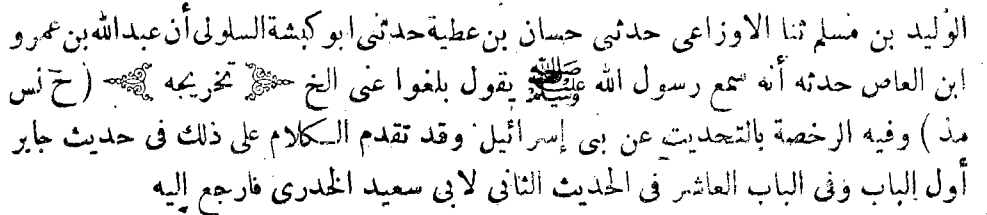 الوليد بن مسلم ثنا الاوزاعى حدثنى حسان بن عطية حدثنى ابو كبشة السلولى أن عبد الله بن عمرو
ابن العاص حدثه أنه سمع رسول الله ﷺ يقول بلغوا عنى الخ تخريجه (خ نس
مذ) وفيه الرخصة بالتحديث عن بنى إسرائيل وقد تقدم الكلام على ذلك فى حديث جابر
أول الباب وفى الباب العاشر فى الحديث الثانى لابى سعيد الخدرى فارجع إليه